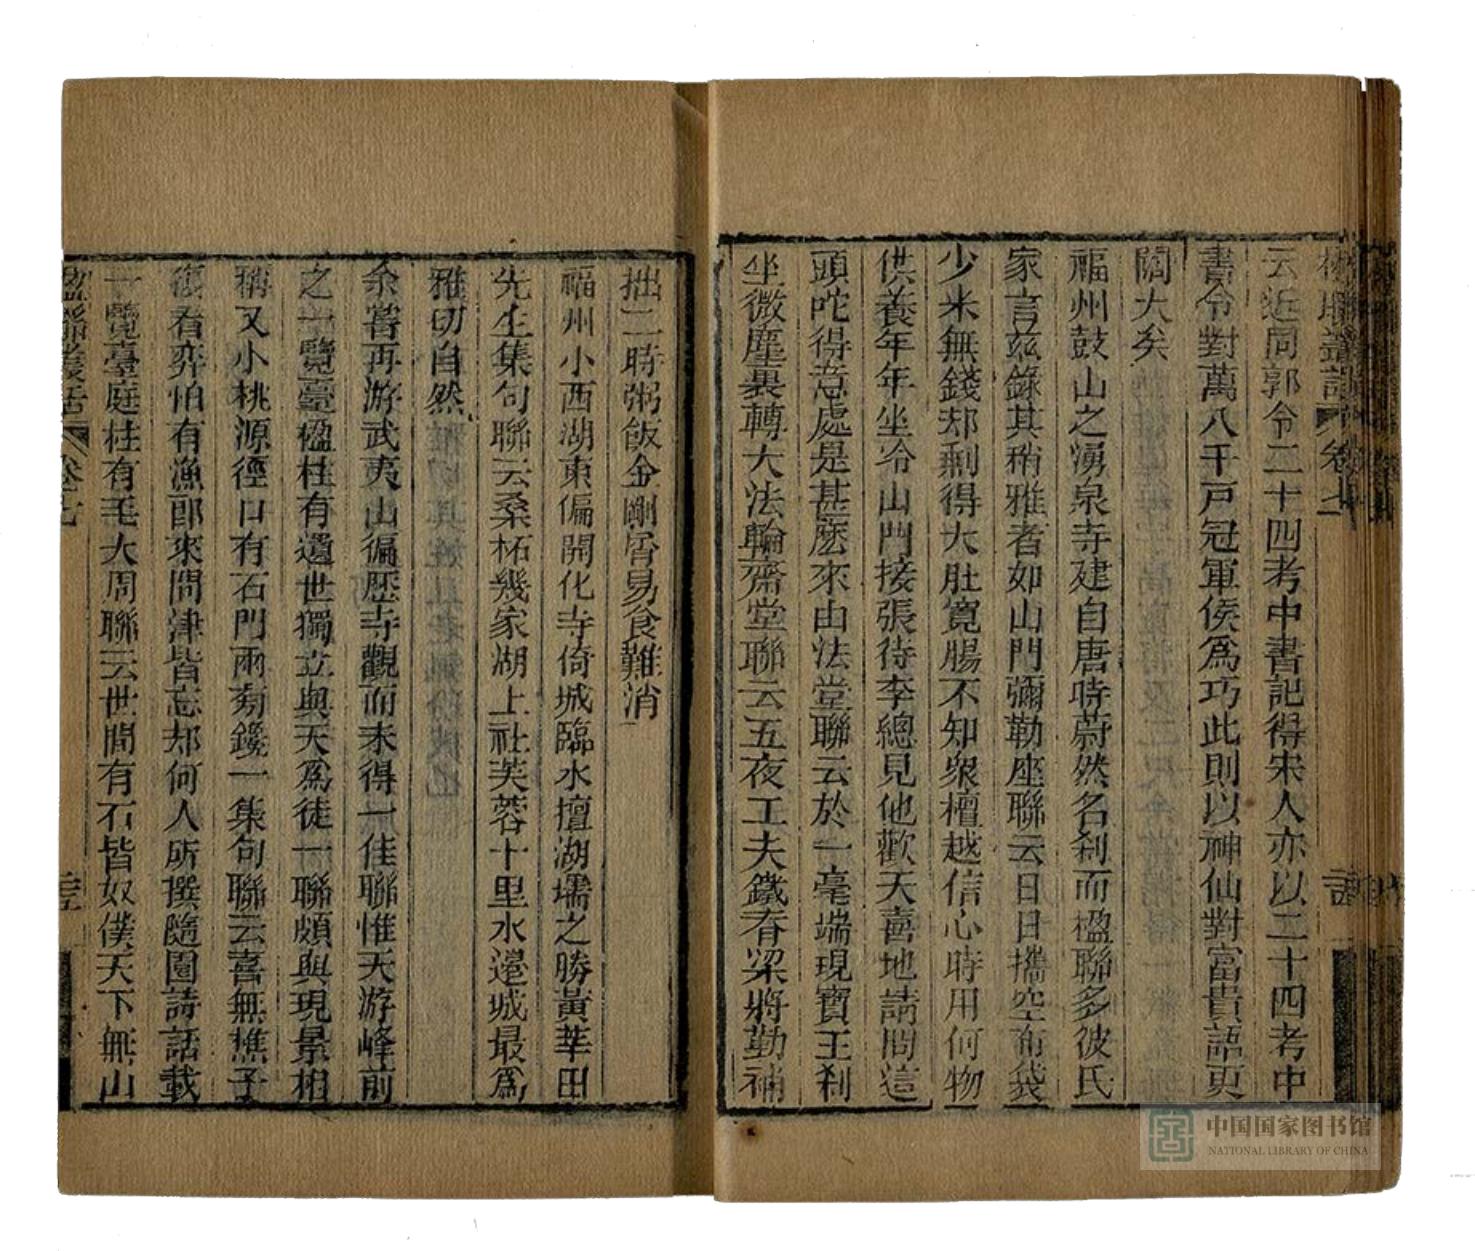 楹聯叢話 卷七
云近同郭令二十四考中書記得宋人亦以二十四考中
書令對萬八千戸冠軍侯爲巧此則以神仙對富貴語更
闊大矣
福州鼓山之湧泉寺建自唐時蔚然名刹而楹聯多彼氏
家言兹錄其稍雅者如山門彌勒座聯云日日攜空布袋
少米無錢却剩得大肚寛腸不知衆檀越信心時用何物
供養年年坐冷山門接張待李總見他歡天喜地請問這
頭陀得意處是甚麽來由法堂聯云於一毫端現寳王刹
坐微塵裏轉大法輪齋堂聯云五夜工夫鐵脊梁將勤補
拙二時粥飯金剛屑易食難消
福州小西湖東偏開化寺倚城臨水擅湖壖之勝黃莘田
先生集句聯云桑柘幾家湖上社芙蓉十里水邊城最爲
雅切自然
余嘗再游武夷山徧歴寺觀而未得一佳聯惟天游峰前
之一覽臺楹柱有遺世獨立與天爲徒一聯頗與現景相
稱又小桃源徑口有石門兩旁鐫一集句聯云喜無樵子
復看弈怕有漁郎來問津皆忘却何人所撰隨園詩話載
一覽臺庭柱有毛大周聯云世間有石皆奴僕天下無山
楹聯叢話 卷七
中国国家图书馆
NATIONAL LIBRARY OF CHINA